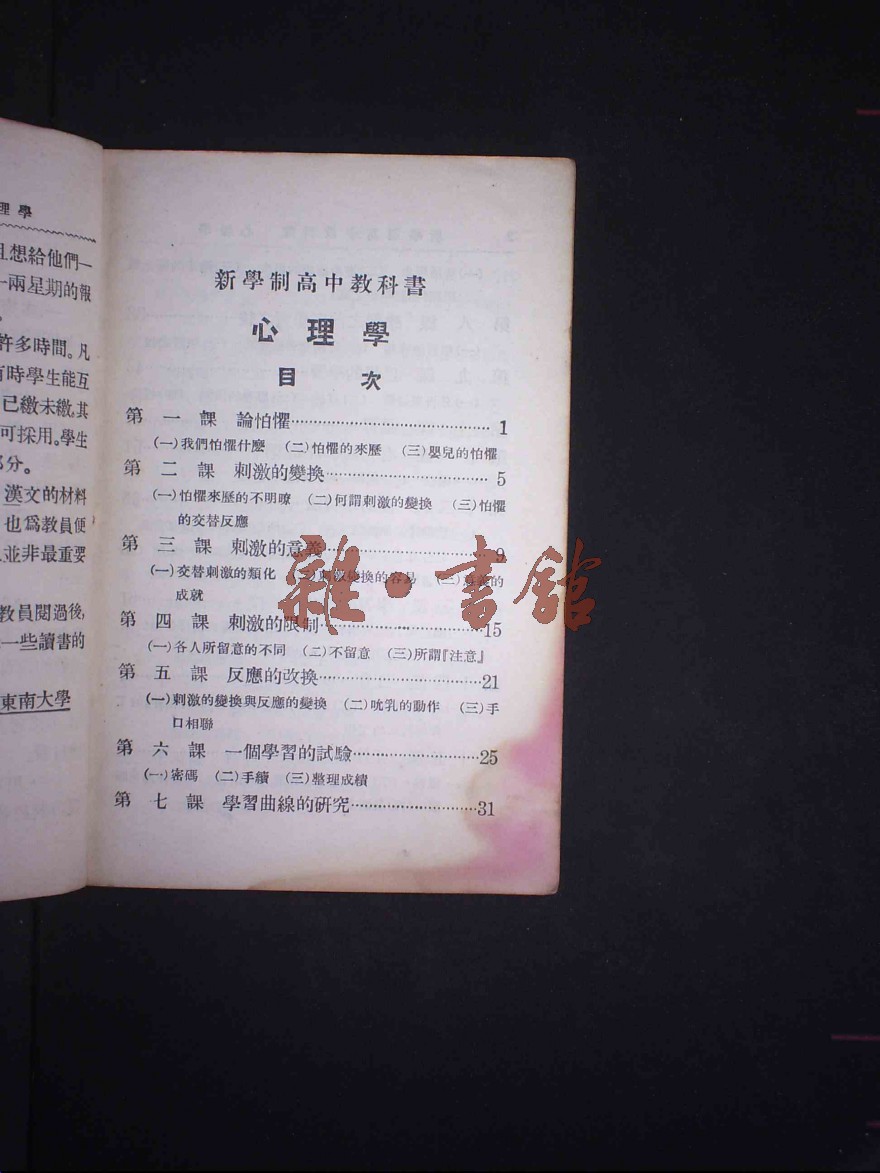 理學
且想給他們一
一兩星期的報
許多時間。凡
有時學生能互
已繳未繳,其
可採用。學生
部分。
漢文的材料
也爲教員便
並非最重要
教員閱過後,
一些讀書的
東南大學
新學制高中教科書
心理學
目 次
第一課 論怕懼 1
(一)我們怕懼什麼 (二)怕懼的來歷 (三)嬰兒的怕懼
第二課 刺激的變換 5
(一)怕懼來歷的不明瞭 (二)何謂刺激的變換 (三)怕懼
的交替反應
第三課 刺激的意義 9
(一)交替刺激的類化 (二)刺激變換的容易 (三)意義的
成就
第四課 刺激的限制 15
(一)各人所留意的不同 (二)不留意 (三)所謂『注意』
第五課 反應的改換 21
(一)刺激的變換與反應的變換 (二)吮乳的動作 (三)手
口相聯
第六課 一個學習的試驗 25
(一)密碼 (二)手續 (三)整理成績
第七課 學習曲線的研究 31
雜·書館